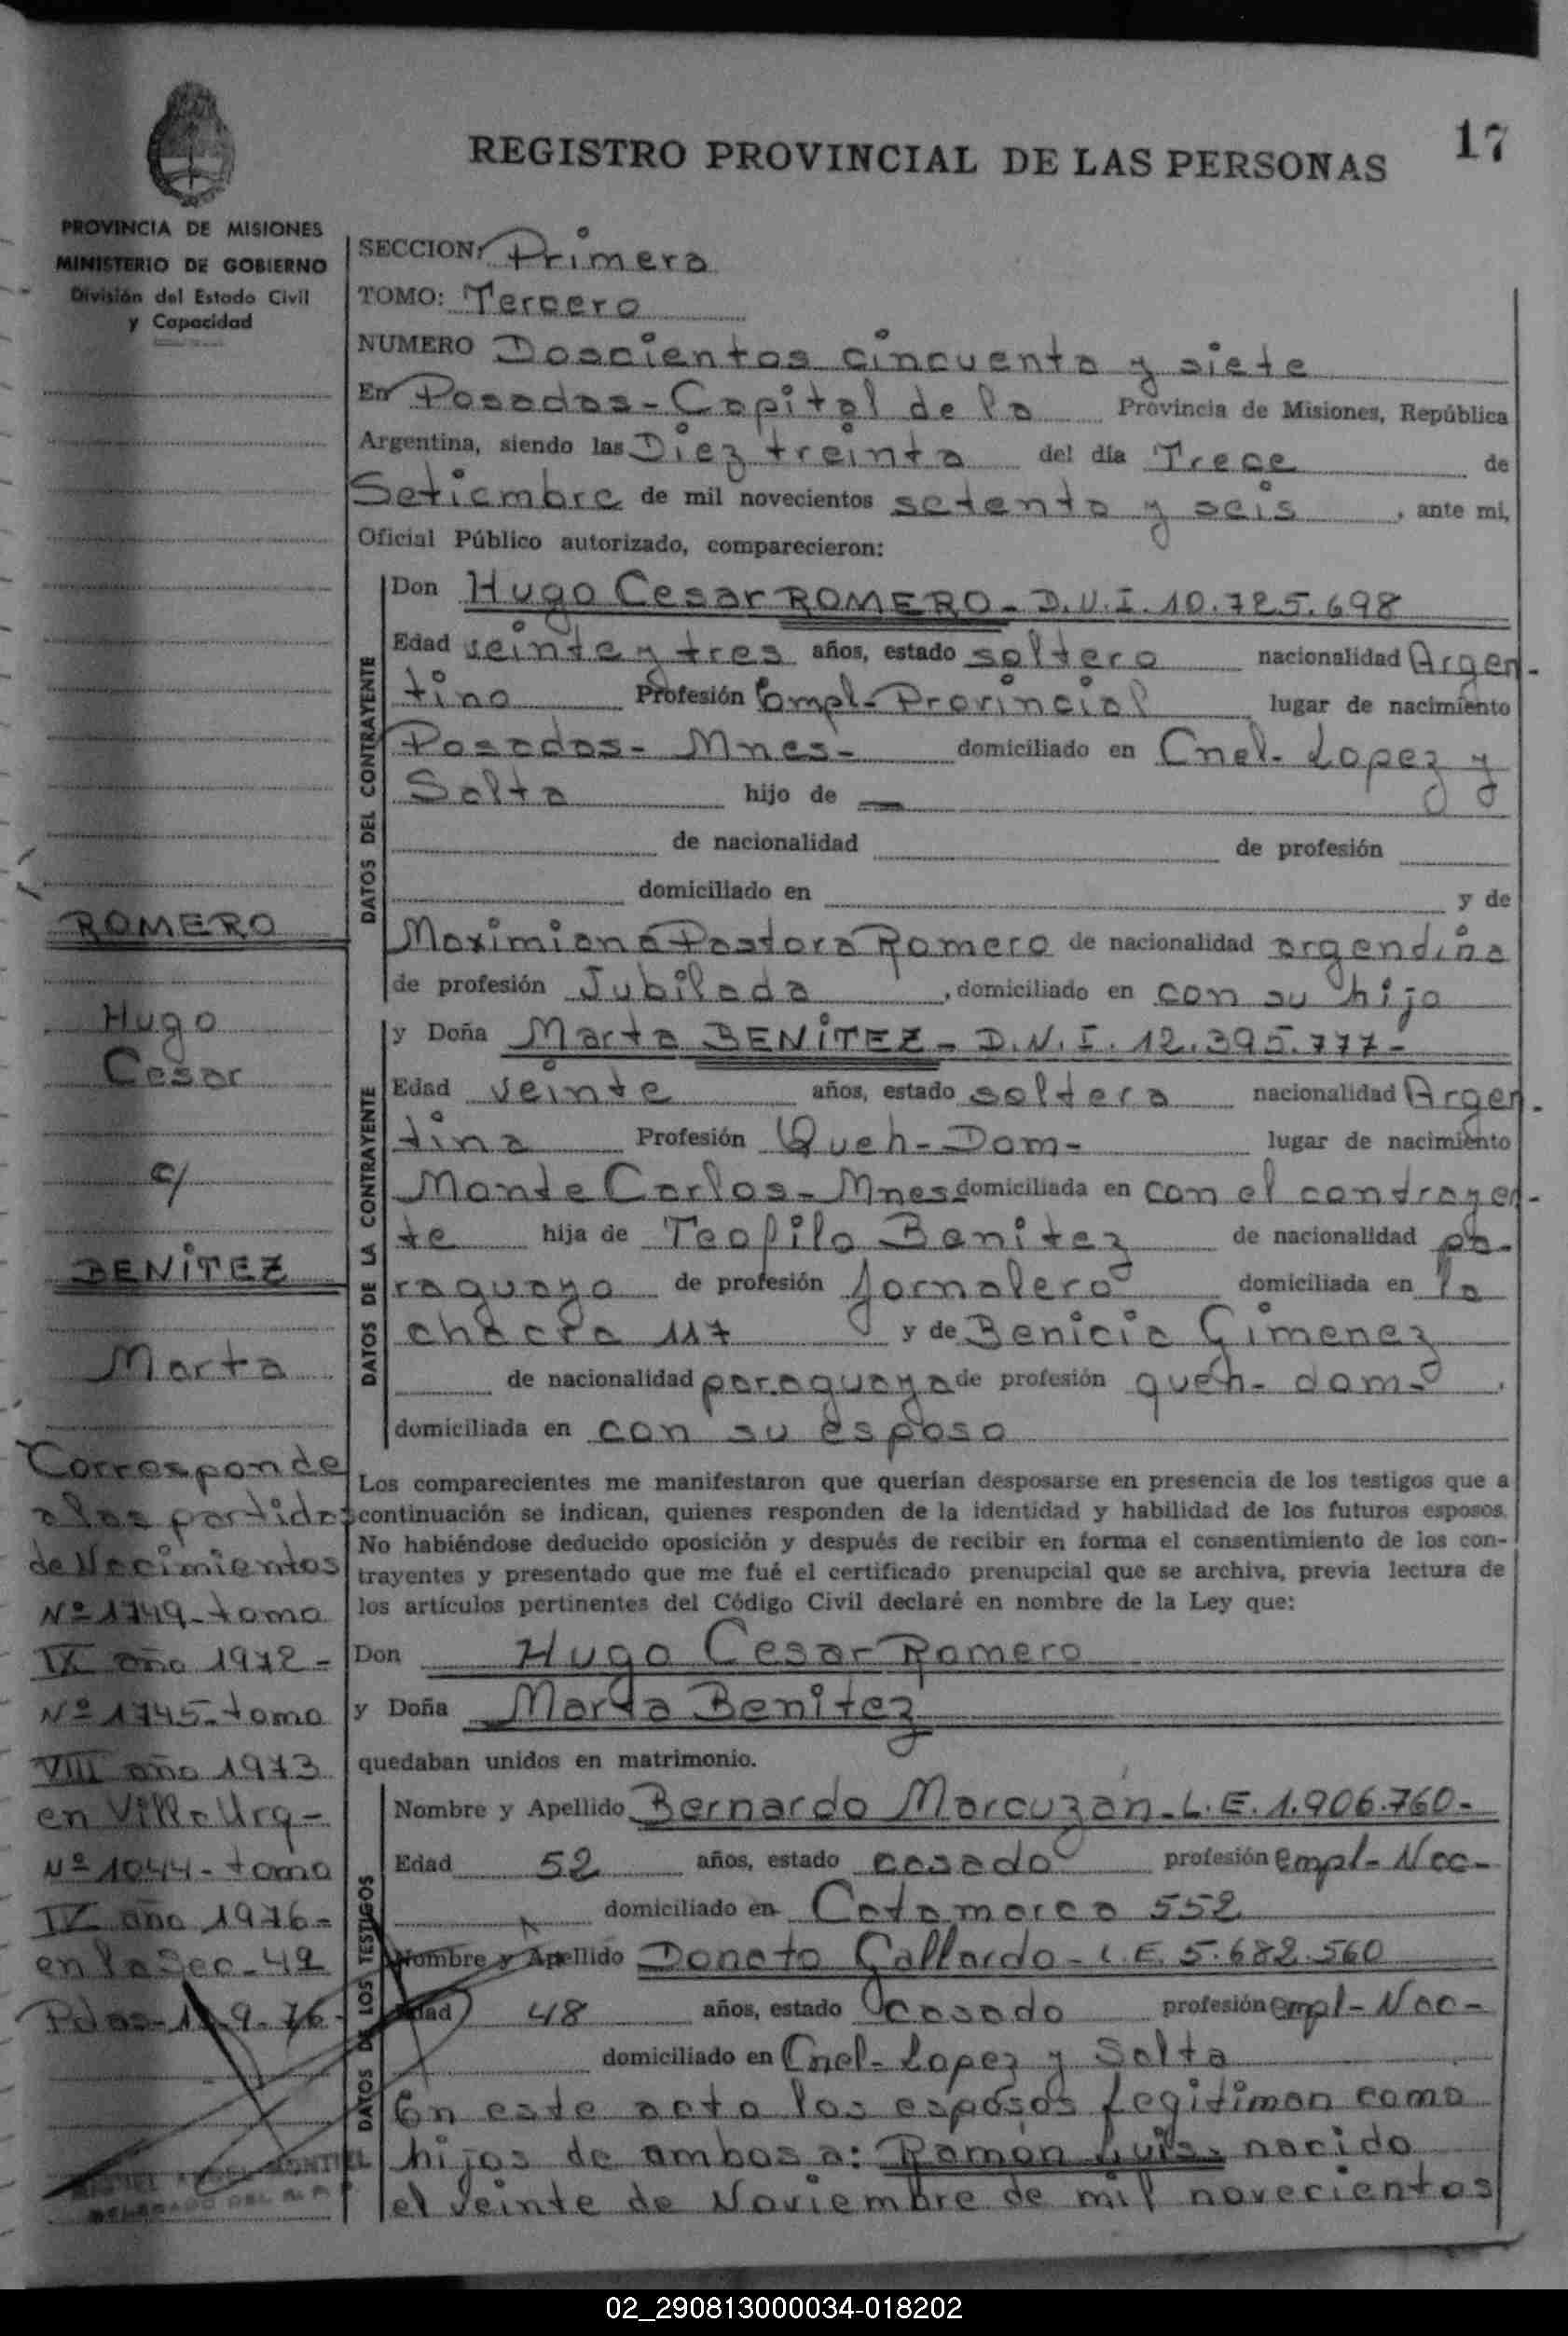 REGISTRO PROVINCIAL DE LAS PERSONAS
17
PROVINCIA DE MISIONES
MINISTERIO DE GOBIERNO
División del Estado Civil
y Capacidad
SECCION: Primera
TOMO: Tercero
NUMERO Doscientos cincuenta y siete
En Posadas - Capital de la Provincia de Misiones, República
Argentina, siendo las Diez treinta del día Trece de
Setiembre de mil novecientos setenta y seis, ante mi,
Oficial Público autorizado, comparecieron:
DATOS DEL CONTRAYENTE
Don Hugo Cesar ROMERO - D.N.I. 10.725.698
Edad veinte y tres años, estado soltero nacionalidad Argen-
tino Profesión Empl- Provincial lugar de nacimiento
Posadas - Mnes - domiciliado en Cnel- Lopez y
Salta hijo de —
de nacionalidad de profesión
domiciliado en y de
Maximiana Pastora Romero de nacionalidad argentina
de profesión Jubilada, domiciliado en con su hijo
DATOS DE LA CONTRAYENTE
y Doña Marta BENITEZ - D.N.I. 12.395.777-
Edad veinte años, estado soltera nacionalidad Argen-
tina Profesión Queh- Dom- lugar de nacimiento
Monte Carlos - Mnes domiciliada en con el contrayen-
te hija de Teofilo Benitez de nacionalidad pa-
raguayo de profesión jornalero domiciliada en la
chacra 117 y de Benicia Gimenez
de nacionalidad paraguaya de profesión queh- dom-,
domiciliada en con su esposo
Los comparecientes me manifestaron que querían desposarse en presencia de los testigos que a
continuación se indican, quienes responden de la identidad y habilidad de los futuros esposos.
No habiéndose deducido oposición y después de recibir en forma el consentimiento de los con-
trayentes y presentado que me fué el certificado prenupcial que se archiva, previa lectura de
los artículos pertinentes del Código Civil declaré en nombre de la Ley que:
Don Hugo Cesar Romero
y Doña Marta Benitez
quedaban unidos en matrimonio.
DATOS DE LOS TESTIGOS
Nombre y Apellido Bernardo Marcuzán - L.E. 1.906.760-
Edad 52 años, estado casado profesión empl- Nac-
domiciliado en Catamarca 552
Nombre y Apellido Donato Gallardo - L.E. 5.682.560
Edad 48 años, estado casado profesión empl- Nac-
domiciliado en Cnel- Lopez y Salta
En este acto los esposos legitiman como
hijos de ambos a: Ramón Luis, nacido
el veinte de Noviembre de mil novecientos
ROMERO
Hugo
Cesar
c/
BENITEZ
Marta
Corresponde
a las partidas
de Nacimientos
Nº 1749- tomo
IX año 1972-
Nº 1745- tomo
VIII año 1973
en Villa Urq-
Nº 1044- tomo
IX año 1976-
en la Sec- 4ª
Pdas- 9-76-
MONTIEL
DELEGADO DEL R. P. P.
02_290813000034-018202